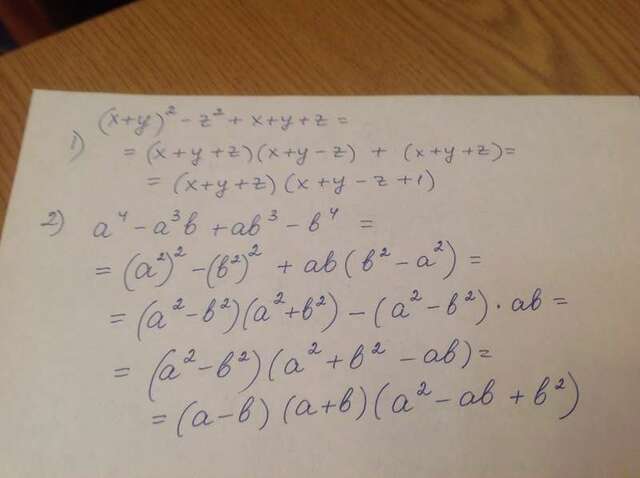 1) (x+y)² - z² + x+y+z =
= (x+y+z)(x+y-z) + (x+y+z)=
= (x+y+z)(x+y-z+1)
2) a⁴ - a³b + ab³ - b⁴ =
= (a²)² - (b²)² + ab(b² - a²) =
= (a² - b²)(a² + b²) - (a² - b²)·ab =
= (a² - b²)(a² + b² - ab) =
= (a-b)(a+b)(a² - ab + b²)